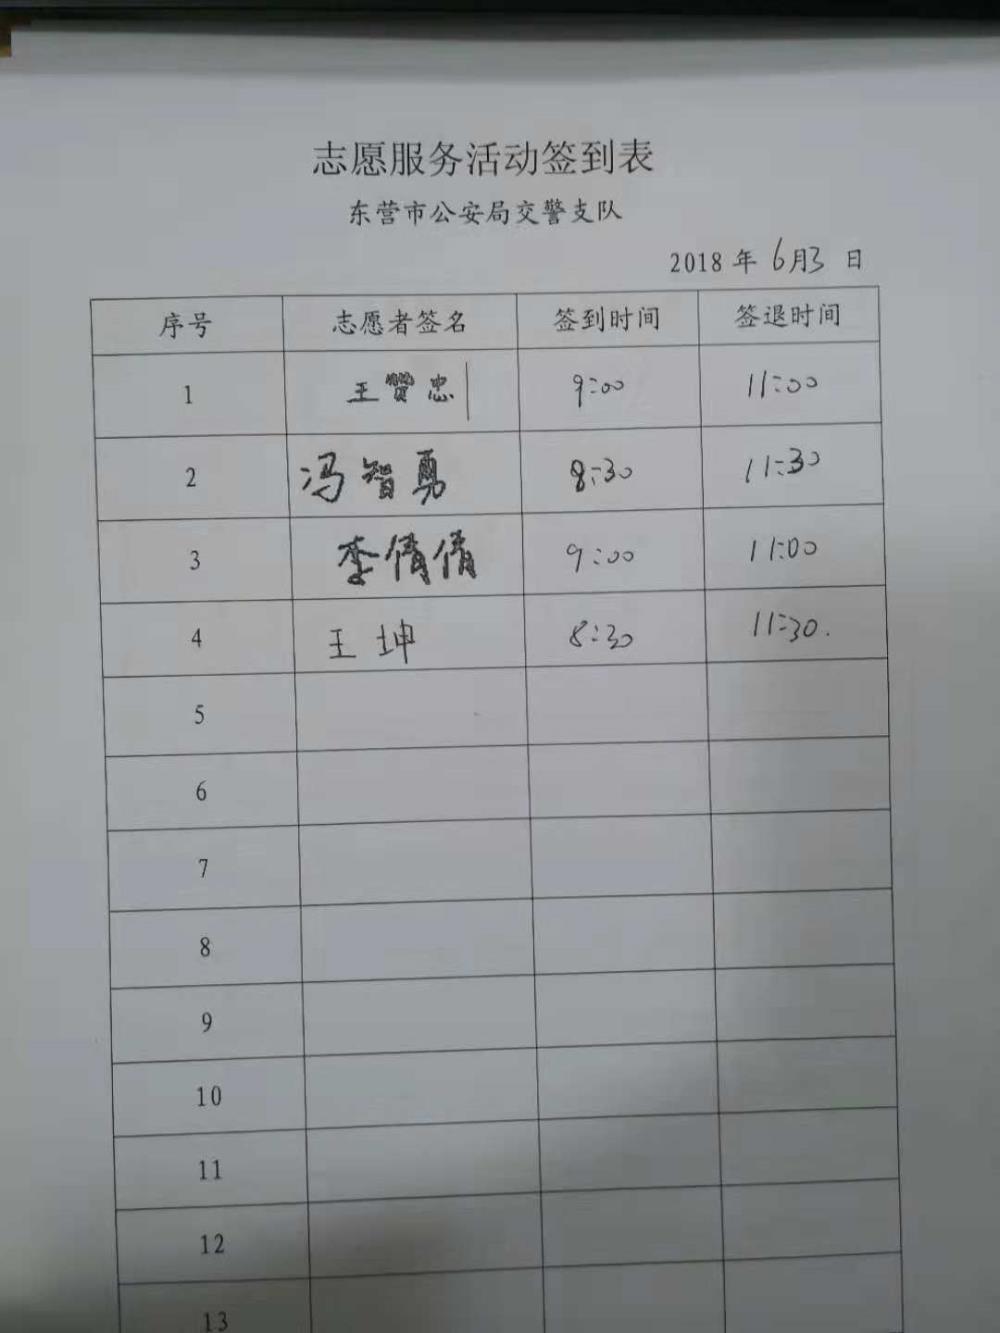 志愿服务活动签到表
东营市公安局交警支队
2018 年 6月3 日
序号 志愿者签名 签到时间 签退时间
1 王赞忠 9:00 11:00
2 冯智勇 8:30 11:30
3 李倩倩 9:00 11:00
4 王坤 8:30 11:30.
5
6
7
8
9
10
11
12
13